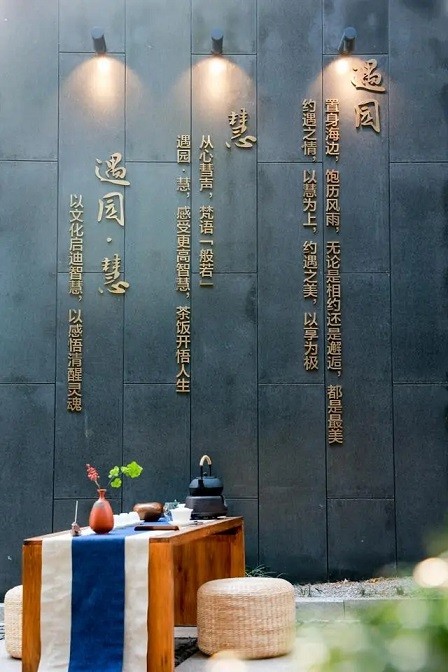 遇园
置身海边，饱历风雨，无论是相约还是邂逅，都是最美
约遇之情，以慧为上，约遇之美，以享为极
慧
从心彗声，梵语「般若」
遇园·慧，感受更高智慧，茶饭开悟人生
遇园·慧
以文化启迪智慧，以感悟清醒灵魂